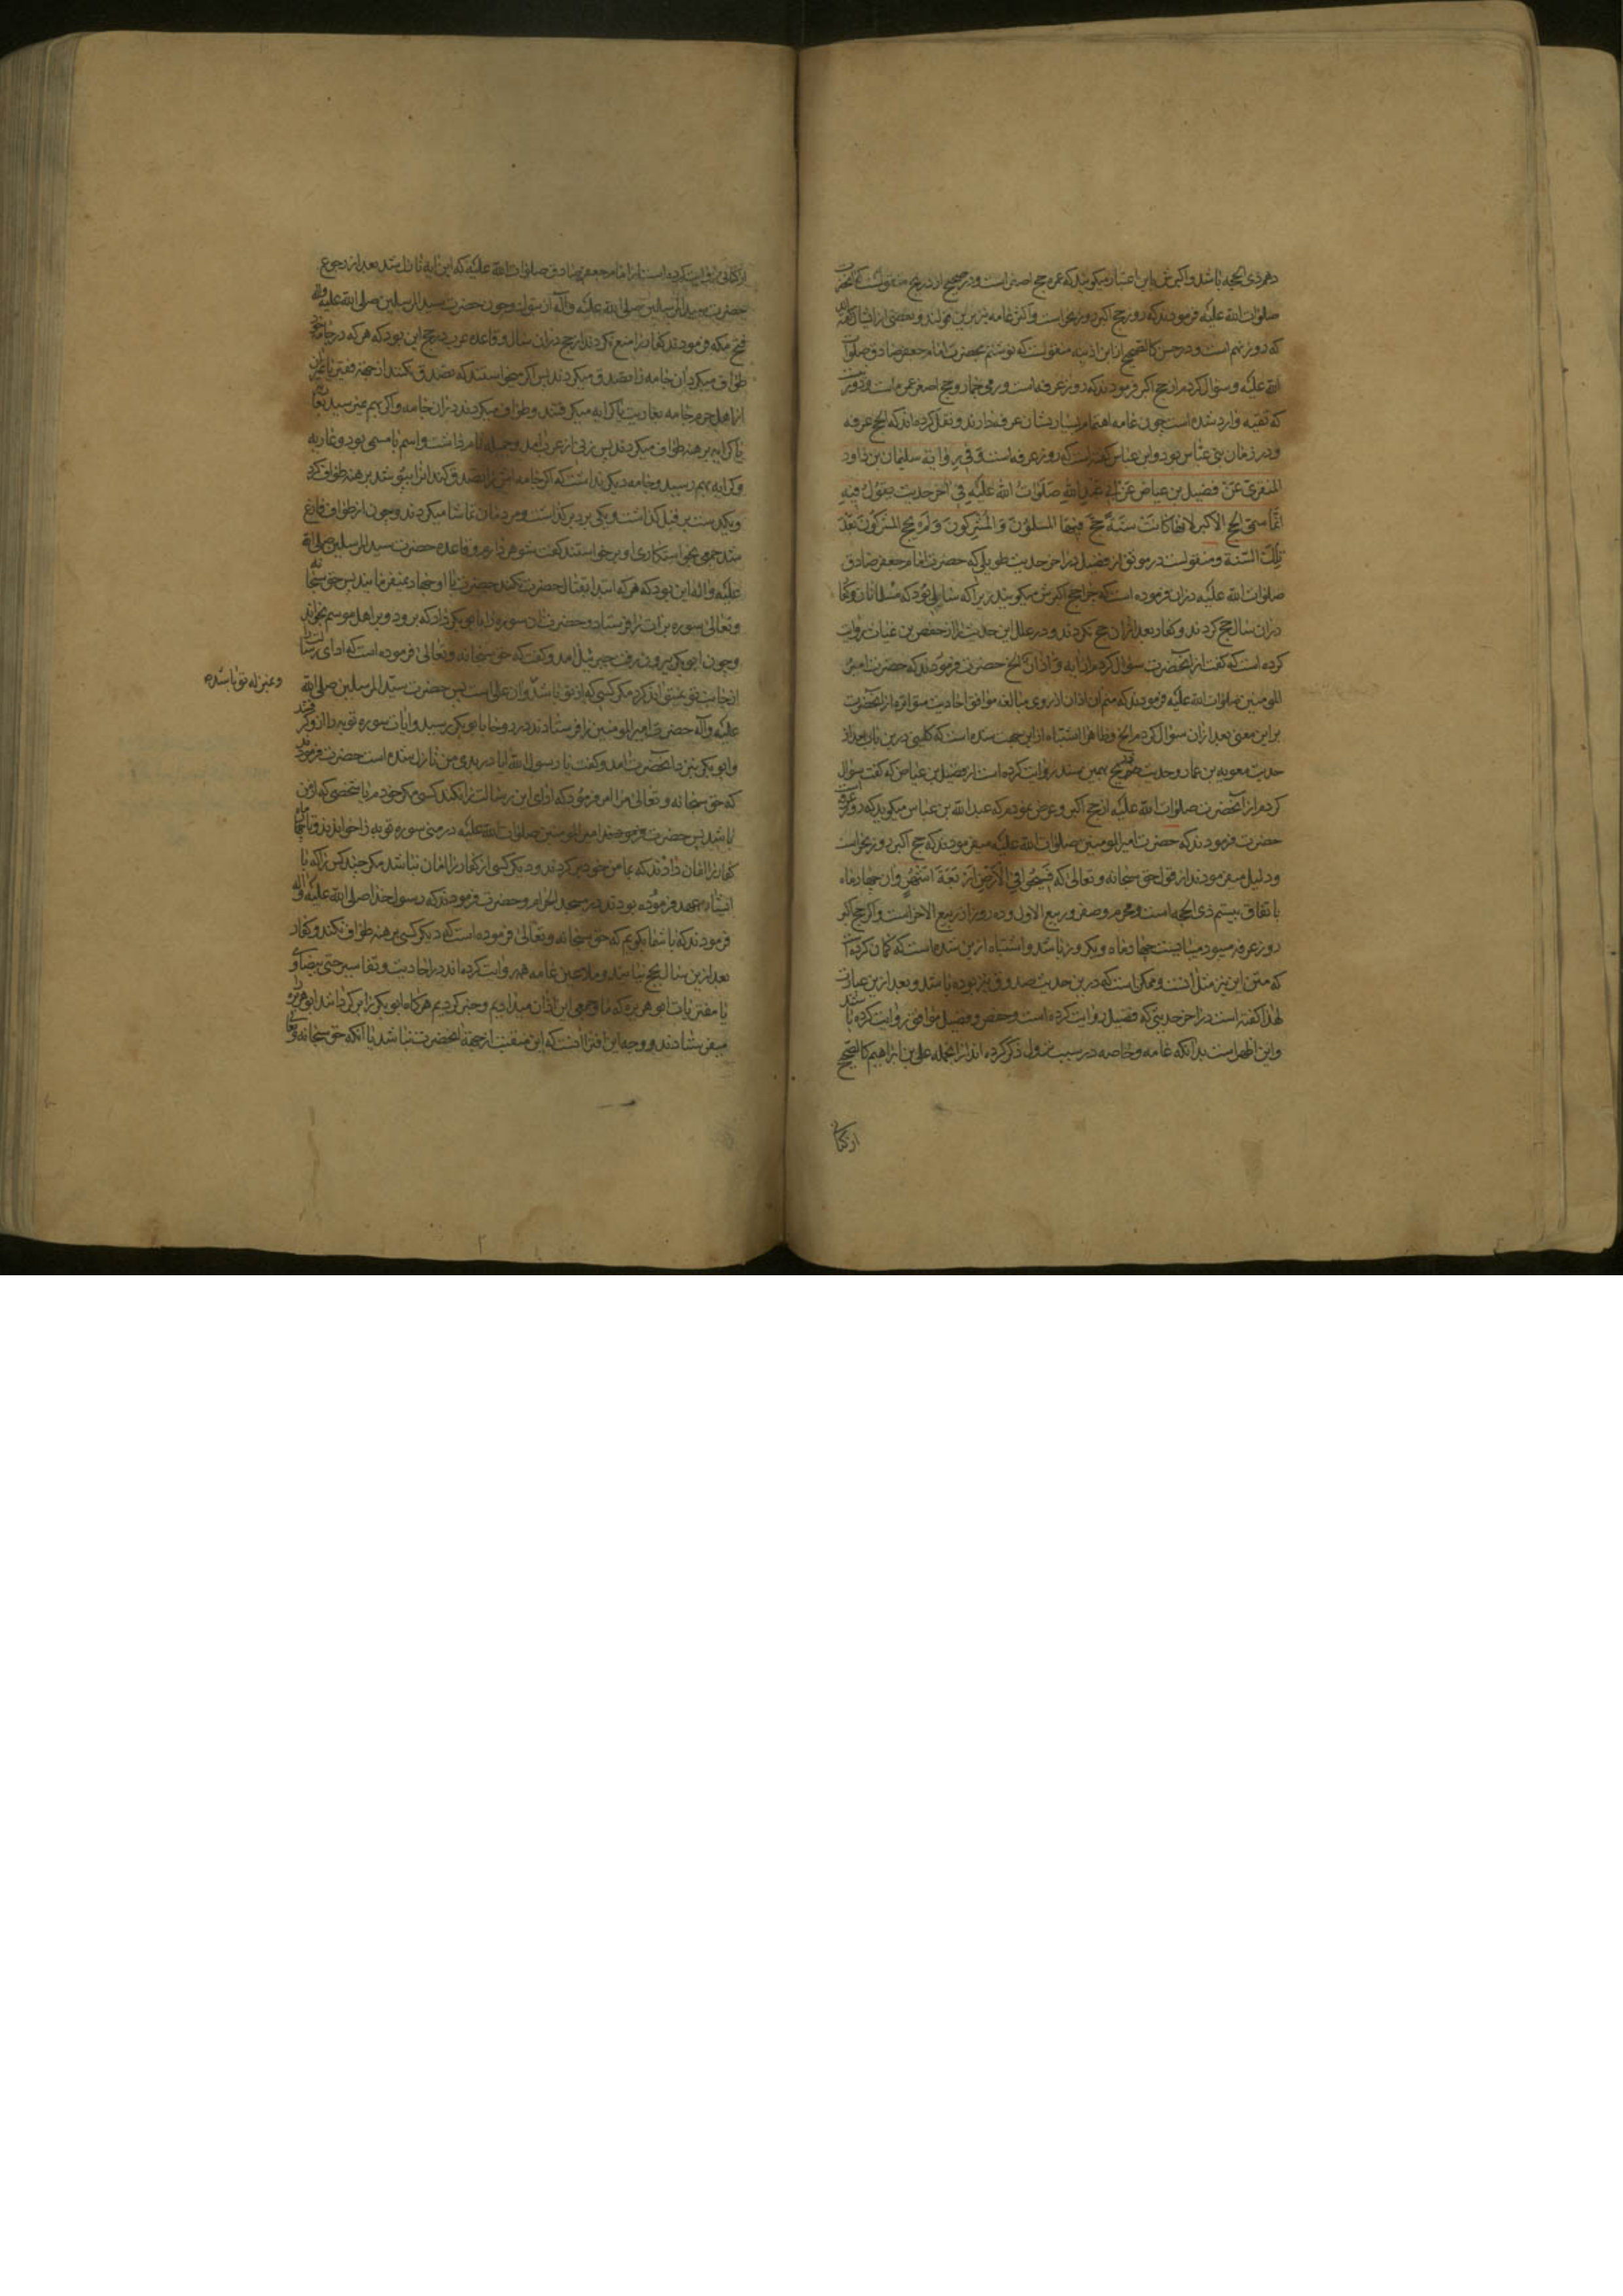 دهم ذی الحجه باشد و اکبرش باین اعتبار میکویند که عمره حج اصغر است و در صحیح از ذریح منقولست که آنحضرت
صلوات الله علیه فرمودند که روز حج اکبر روز نحر است و اکثر عامه نیز برین قولند و بعضی از ایشان گفته اند
که روز نهم است و در حسن کالصحیح از ابن اذینه منقولست که نوشتم بحضرت امام جعفر صادق صلوات
الله علیه و سؤال کردم از حج اکبر فرمودند که روز عرفه است و رمی جمار و حج اصغر عمره است و
که تقیه وارد شده است چون عامه اهتمام بسیار بشان عرفه دارند و نقل کرده اند که الحج عرفه
و در زمان بنی عباس بود و ابن عباس گفته است که روز عرفه است و فی روایة سلیمان بن داود
المنقری عن فضیل بن عیاض عن ابی عبد الله صلوات الله علیه فی آخر حدیث یقول فیه
انما سمی الحج الاکبر لانها کانت سنة حج فیها المسلمون و المشرکون و لم یحج المشرکون بعد
تلک السنة و منقولست در موثق از فضیل در آخر حدیث طویلی که حضرت امام جعفر صادق
صلوات الله علیه دران فرموده است که چرا حج اکبرش میکویند زیرا که سالی بود که مسلمانان و کفار
دران سال حج کردند و کفار بعد ازان حج نکردند و در علل این حدیث را از حفص بن غیاث روایت
کرده است که گفت از آنحضرت سؤال کردم از آیه و اذان الخ حضرت فرمودند که حضرت امیر
المومنین صلوات الله علیه فرمودند که منم آن اذان از روی مبالغه موافق احادیث متواتره از آنحضرت
بر این معنی بعد ازان سؤال کردم الخ و ظاهرا اشتباه از این جهت شده است که کلینی درین باب بعد از
حدیث معویه بن عمار و حدیث ذریح بهمین سند روایت کرده است از فضیل بن عیاض که گفت سؤال
کردم از آنحضرت صلوات الله علیه از حج اکبر و عرض نمودم که عبد الله بن عباس میکوید که روز عرفه است
حضرت فرمودند که حضرت امیر المومنین صلوات الله علیه میفرمودند که حج اکبر روز نحر است
و دلیل میفرمودند از قول حق سبحانه و تعالی که فسیحوا فی الارض اربعة اشهر و آن چهار ماه
باتفاق بیستم ذی الحجه است و محرم و صفر و ربیع الاول و ده روز از ربیع الاخر است و اکر حج اکبر
روز عرفه میبود میبایست چهار ماه و یکروز باشد و اشتباه ازین شده است که گمان کرده است
که متن این نیز مثل آنست و ممکن است که درین حدیث صدوق نیز بوده باشد و بعد ازین عبارت
لهذا گفته است در آخر حدیثی که فضیل روایت کرده است و حفص و فضیل موافق روایت کرده باشند
و این اظهر است بدانکه عامه و خاصه در سبب نزول ذکر کرده اند از انجمله علی بن ابراهیم کالصحیح
از کنانی
از کنانی روایت کرده است از امام جعفر صادق صلوات الله علیه که این آیه نازل شد بعد از رجوع
حضرت سید المرسلین صلی الله علیه و آله از تبوک و چون حضرت سید المرسلین صلی الله علیه و آله
فتح مکه فرمودند کفار را منع نکردند از حج دران سال و قاعده عرب در حج این بود که هر که در جامه خود
طواف میکرد آن جامه را تصدق میکردند پس اکر میخواستند که تصدق نکنند از جهة فقر یا غیر آن
از اهل حرم جامه بعاریت یا کرایه میکرفتند و طواف میکردند دران جامه و اکر بهم نمیرسید بعاریه
یا کرایه برهنه طواف میکردند پس زنی از عرب آمد و جمیله نام داشت و اسم با مسمی بود و عاریه
و کرایه بهم نرسید و جامه دیکر نداشت که اکر جامه اش را تصدق کند انرا بپوشد برهنه طواف کرد
و یکدست بر قبل گذاشت و یکی بر دبر گذاشت و مردمان تماشا میکردند و چون از طواف فارغ
شد جمعی بخواستکاری او برخواستند گفت شوهر دارم و قاعده حضرت سید المرسلین صلی الله
علیه و آله این بود که هر که ابتدا بقتال حضرت نکند حضرت با او جهاد نمیفرمایند پس حق سبحانه
و تعالی سوره براءت را فرستاد و حضرت آن سوره را بابو بکر داد که برود و بر اهل موسم بخواند
و چون ابو بکر بیرون رفت جبرئیل آمد و گفت که حق سبحانه و تعالی فرموده است که ادای رسالت
از جانب تو نمیتواند کرد مکر کسی که از تو باشد و آن علی است پس حضرت سید المرسلین صلی الله
و بمنزله تو باشد
علیه و آله حضرت امیر المومنین را فرستادند در روحا بابو بکر رسید و آیات سوره توبه را از و گرفتند
و ابو بکر بنزد آنحضرت آمد و گفت یا رسول الله آیا در بدی من نازل شده است حضرت فرمودند
که حق سبحانه و تعالی مرا امر فرمود که ادای این رسالت را نکند کسی مکر خودم یا شخصی که از من
باشد پس حضرت فرمودند امیر المومنین صلوات الله علیه در منی سوره توبه را خواندند و تا چهار ماه
کفار را امان دادند که بمامن خود برگردند و دیگر کسی از کفار را امان نباشد مکر چند کس را که با
ایشان عهد فرموده بودند در مسجد الحرام و حضرت فرمودند که رسول خدا صلی الله علیه و آله
فرمودند که با شما بکویم که حق سبحانه و تعالی فرموده است که دیکر کسی برهنه طواف نکند و کفار
بعد ازین سال بحج نیایند و ملاعین عامه همه روایت کرده اند در احادیث و تفاسیر حتی بیضاوی
با مفتریات ابو هریره که ما و جمعی این اذان میدادیم و حیر کردیم هرگاه ابو بکر را برگرداند ابو هریره را
میفرستادند و وجه این افترا آنست که این منقبت از جهة آنحضرت نباشد با آنکه حق سبحانه و تعالی